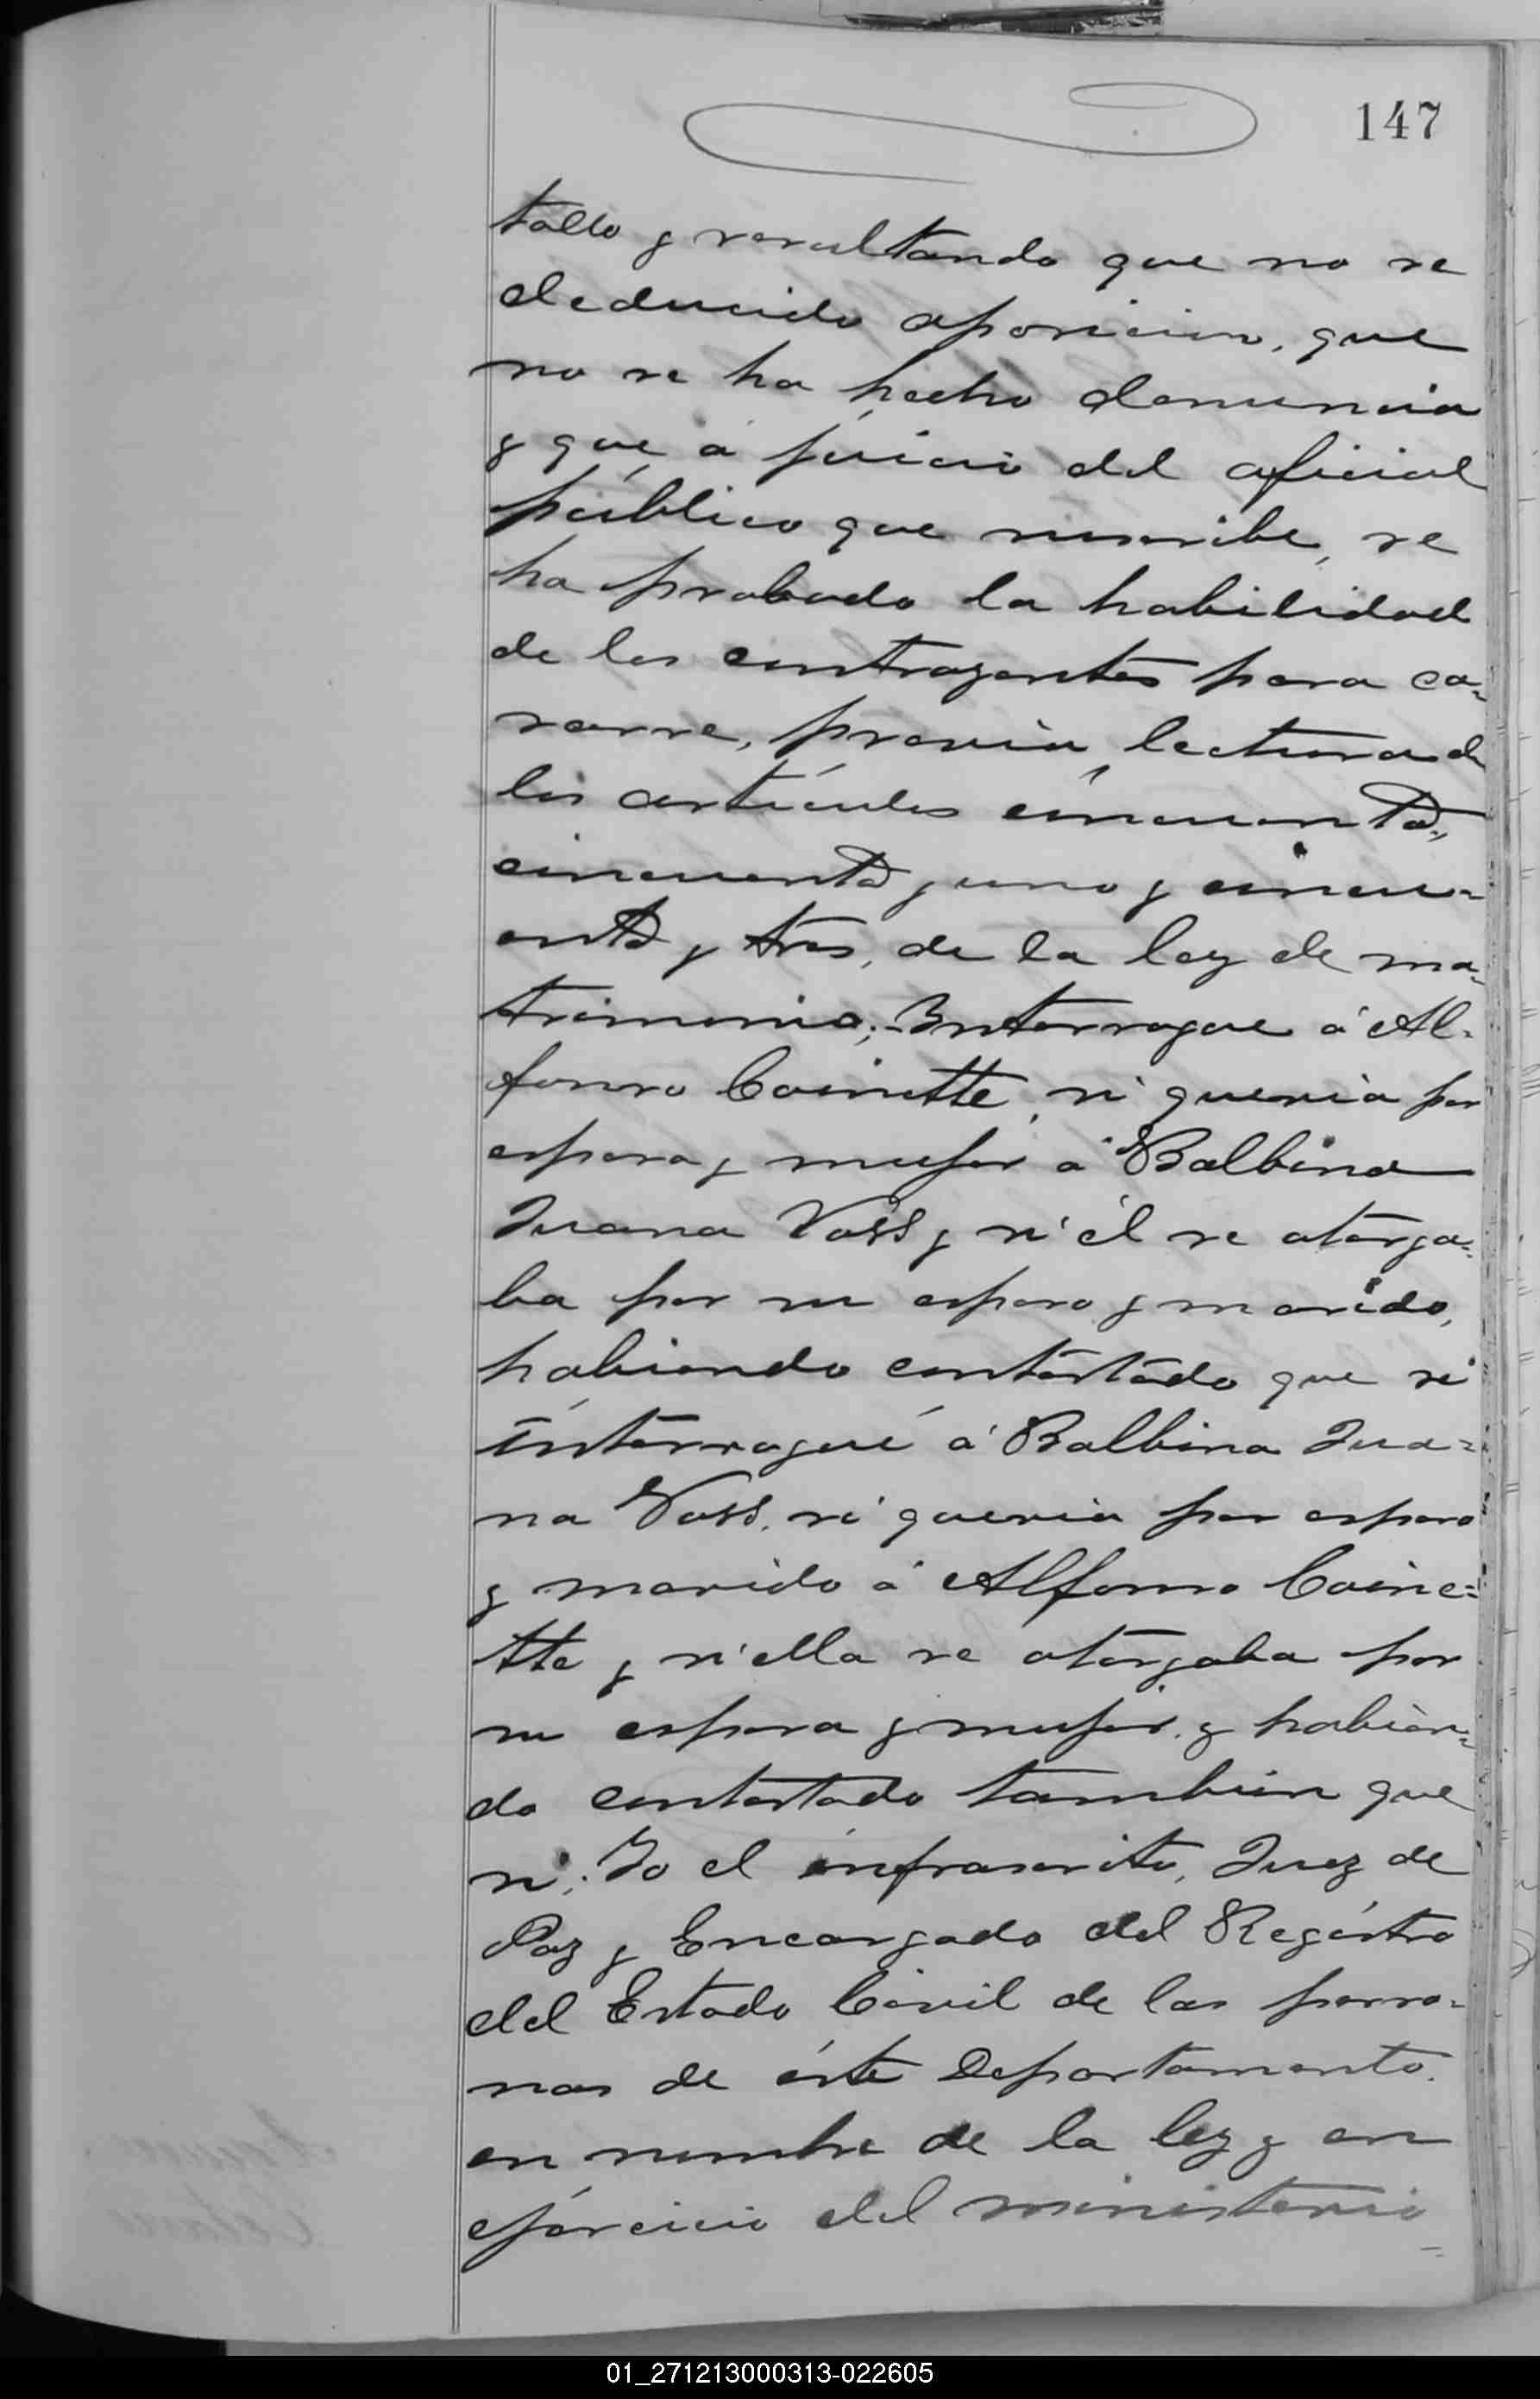 147
tallo y resultando que no se
deducido oposicion, que
no se ha hecho denuncia
y que á juicio del oficial
público que suscribe, se
ha probado la habilidad
de los contrayentes para ca-
sarse, previa lectura de
los artículos cincuenta,
cincuenta y uno y cincu-
enta y tres, de la ley de ma-
trimonio; Interrogue á Al-
fonso Coinette, si queria por
esposa y mujer á Balbina
Juana Voss y si él se otorga-
ba por su esposo y marido,
habiendo contestado que si
interrogué á Balbina Jua-
na Voss, si queria por esposo
y marido á Alfonso Coine-
tte y si ella se otorgaba por
su esposa y mujer, y habien-
do contestado tambien que
si; Yo el infrascrito, Juez de
Paz y Encargado del Registro
del Estado Civil de las perso-
nas de éste Departamento,
en nombre de la ley y en
ejercicio del ministerio
01_271213000313-022605